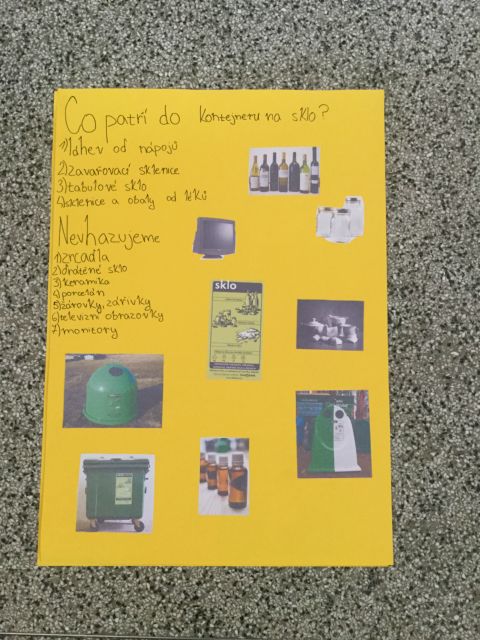 Co patří do kontejneru na sklo?
1) láhev od nápojů
2) zavařovací sklenice
3) tabulové sklo
4) sklenice a obaly od léků
Nevhazujeme
1) zrcadla
2) drátěné sklo
3) keramika
4) porcelán
5) žárovky, zářivky
6) televizní obrazovky
7) monitory
sklo